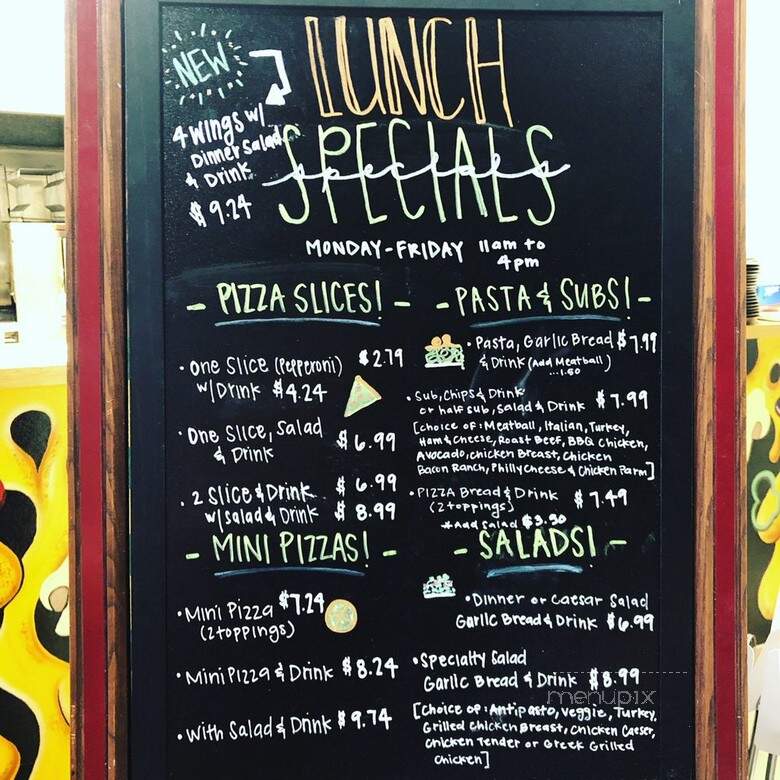 NEW
LUNCH
4 Wings w/
Dinner Salad
& Drink
$9.24
SPECIALS
specials
MONDAY-FRIDAY 11am to
4pm
- PIZZA SLICES! -
• One Slice (Pepperoni) $2.79
w/Drink $4.24
• One Slice, Salad
& Drink $6.99
• 2 Slice & Drink $6.99
w/Salad & Drink $8.99
- MINI PIZZAS! -
• Mini Pizza $7.24
(2 toppings)
• Mini Pizza & Drink $8.24
• With Salad & Drink $9.74
- PASTA & SUBS! -
• Pasta, Garlic Bread $7.99
& Drink (Add Meatball)
...1.50
• Sub, Chips & Drink
or half sub, Salad & Drink $7.99
[choice of: Meatball, Italian, Turkey,
Ham & Cheese, Roast Beef, BBQ Chicken,
Avocado, chicken Breast, Chicken
Bacon Ranch, Philly Cheese & Chicken Parm]
• PIZZA Bread & Drink $7.49
(2 toppings)
*Add Salad $3.50
- SALADS! -
• Dinner or Caesar Salad
Garlic Bread & Drink $6.99
• Specialty Salad
Garlic Bread & Drink $8.99
[Choice of: Antipasto, Veggie, Turkey,
Grilled Chicken Breast, Chicken Caesar,
Chicken Tender or Greek Grilled
Chicken]
menupix